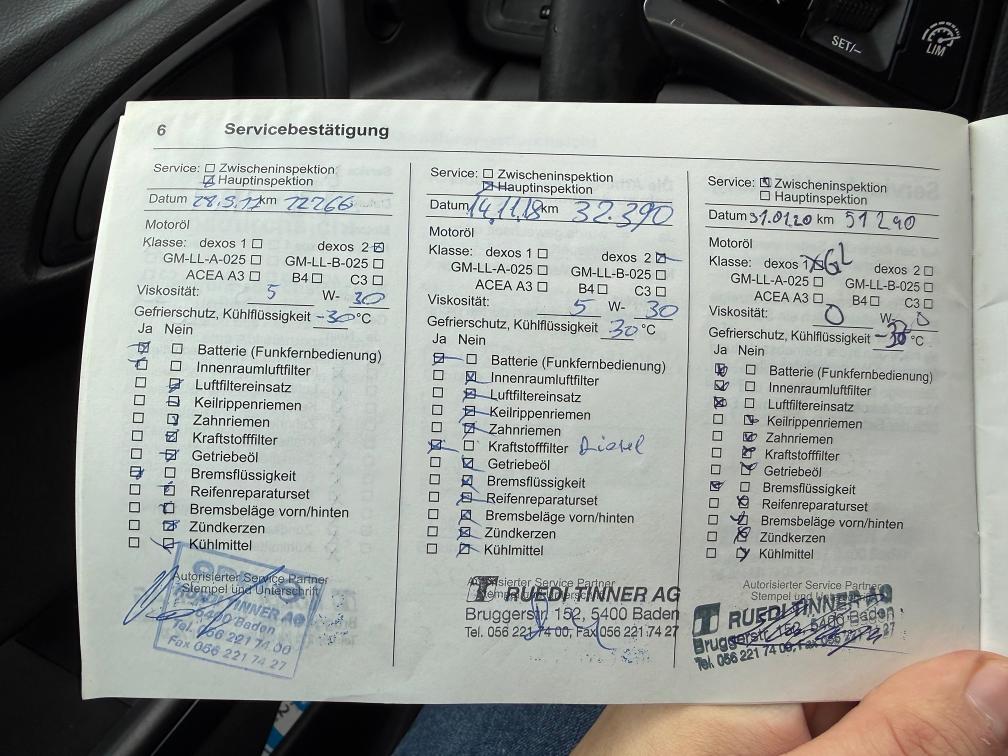 SET/–
LIM
6 Servicebestätigung
Service: Zwischeninspektion
Hauptinspektion
Datum 28.5.17 km 12266
Motoröl
Klasse: dexos 1 dexos 2
GM-LL-A-025 GM-LL-B-025
ACEA A3 B4 C3
Viskosität: 5 W- 30
Gefrierschutz, Kühlflüssigkeit -30 °C
Ja Nein
Batterie (Funkfernbedienung)
Innenraumluftfilter
Luftfiltereinsatz
Keilrippenriemen
Zahnriemen
Kraftstofffilter
Getriebeöl
Bremsflüssigkeit
Reifenreparaturset
Bremsbeläge vorn/hinten
Zündkerzen
Kühlmittel
Autorisierter Service Partner
Stempel und Unterschrift
RUEDI TINNER AG
5400 Baden
Tel. 056 221 74 00
Fax 056 221 74 27
Service: Zwischeninspektion
Hauptinspektion
Datum 14.11.18 km 32.390
Motoröl
Klasse: dexos 1 dexos 2
GM-LL-A-025 GM-LL-B-025
ACEA A3 B4 C3
Viskosität: 5 W- 30
Gefrierschutz, Kühlflüssigkeit 30 °C
Ja Nein
Batterie (Funkfernbedienung)
Innenraumluftfilter
Luftfiltereinsatz
Keilrippenriemen
Zahnriemen
Kraftstofffilter Diesel
Getriebeöl
Bremsflüssigkeit
Reifenreparaturset
Bremsbeläge vorn/hinten
Zündkerzen
Kühlmittel
Autorisierter Service Partner
Stempel und Unterschrift
T RUEDI TINNER AG
Bruggerstr. 152, 5400 Baden
Tel. 056 221 74 00, Fax 056 221 74 27
Service: Zwischeninspektion
Hauptinspektion
Datum 31.01.20 km 51290
Motoröl
Klasse: dexos 1 dexos 2
GM-LL-A-025 GM-LL-B-025
ACEA A3 B4 C3
Viskosität: 0 W-
Gefrierschutz, Kühlflüssigkeit -30 °C
Ja Nein
Batterie (Funkfernbedienung)
Innenraumluftfilter
Luftfiltereinsatz
Keilrippenriemen
Zahnriemen
Kraftstofffilter
Getriebeöl
Bremsflüssigkeit
Reifenreparaturset
Bremsbeläge vorn/hinten
Zündkerzen
Kühlmittel
Autorisierter Service Partner
Stempel und Unterschrift
T RUEDI TINNER AG
Bruggerstr. 152, 5400 Baden
Tel. 056 221 74 00, Fax 056 221 74 27